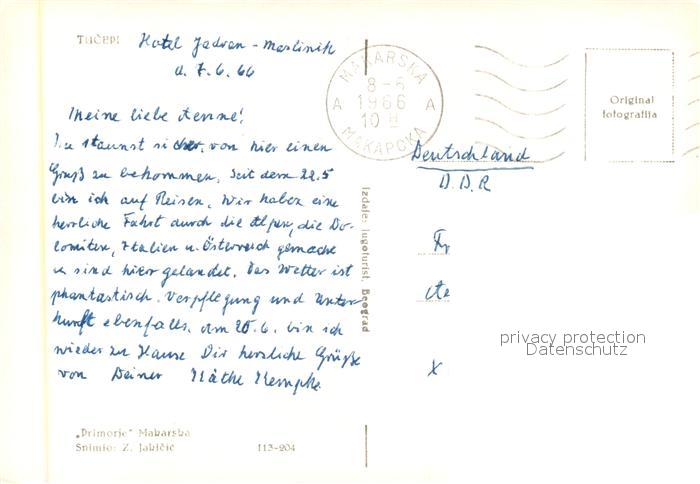 TUČEPI
Hotel Jadran - Maslinik
d. 7.6.66
Meine liebe Aenne!
Du staunst sicher, von hier einen
Gruß zu bekommen. Seit dem 22.5
bin ich auf Reisen. Wir haben eine
herrliche Fahrt durch die Alpen, die Do-
lomiten, Italien u. Österreich gemacht
u. sind hier gelandet. Das Wetter ist
phantastisch. Verpflegung und Unter-
kunft ebenfalls. Am 20.6. bin ich
wieder zu Hause Dir herzliche Grüße
von Deiner Käthe Kempke.
„Primorje" Makarska
Snimio: Z. Jakičić 113-204
Izdaje: Jugoturist, Beograd
MAKARSKA
8-6
A 1966 A
10 H
МАКАРСКА
Original
fotografija
Deutschland
D.D.R
Fr
Ae
X
privacy protection
Datenschutz